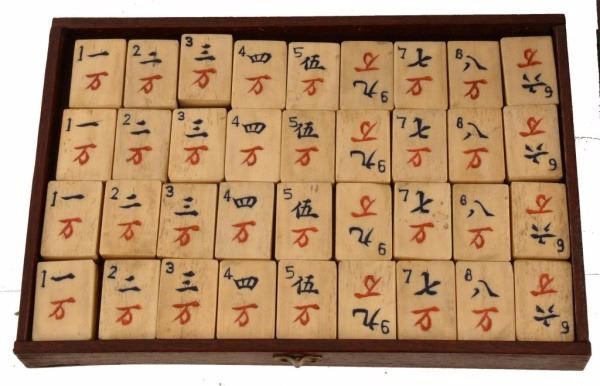 1一 2二 3三 4四 5伍 9九 7七 8八 6六
万 万 万 万 万 万 万 万 万
1一 2二 3三 4四 5伍 9九 7七 8八 6六
万 万 万 万 万 万 万 万 万
1一 2二 3三 4四 5伍 9九 7七 8八 6六
万 万 万 万 万 万 万 万 万
1一 2二 3三 4四 5伍 9九 7七 8八 6六
万 万 万 万 万 万 万 万 万